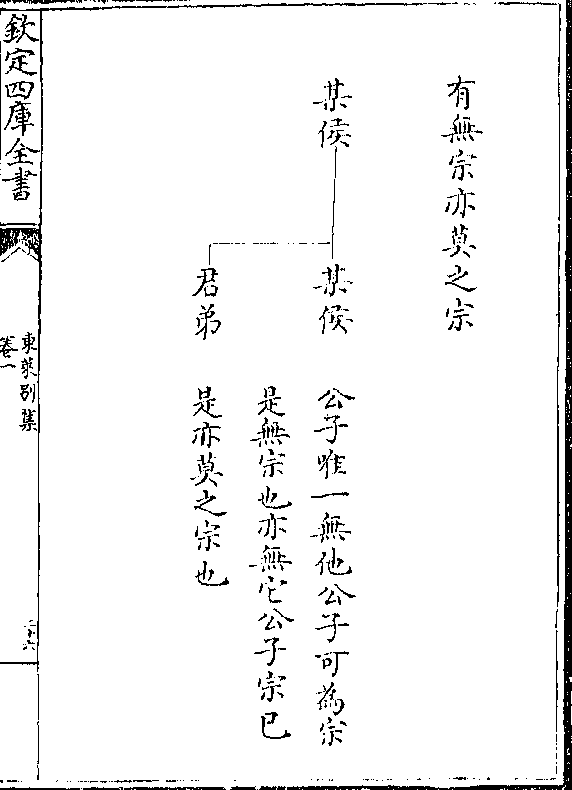 有無宗亦莫之宗
某侯
某侯
公子唯一無他公子可為宗
是無宗也亦無它公子宗已
君弟
是亦莫之宗也
欽定四庫全書
東萊别集
卷一
二十六